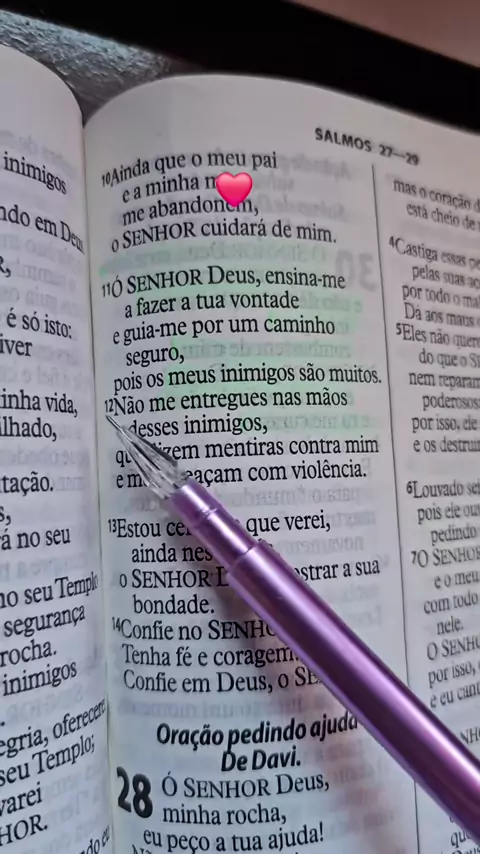 inimigos
ndo em Deus
é só isto:
inha vida,
tação.
á no seu
no seu Templo
segurança
rocha.
inimigos
egria, oferecere
seu Templo;
varei
HOR.
SALMOS 27—29
10Ainda que o meu pai
e a minha
me abandonem,
o SENHOR cuidará de mim.
11Ó SENHOR Deus, ensina-me
a fazer a tua vontade
e guia-me por um caminho
seguro,
pois os meus inimigos são muitos.
12Não me entregues nas mãos
desses inimigos,
que dizem mentiras contra mim
e me ameaçam com violência.
13Estou que verei,
ainda
o SENHOR mostrar a sua
bondade.
14Confie no SENHOR
Tenha fé e coragem.
Confie em Deus, o
Oração pedindo ajuda
De Davi.
28 Ó SENHOR Deus,
minha rocha,
eu peço a tua ajuda!
mas o coração d
está cheio de
4Castiga essas pe
pelas suas aç
por todo o ma
Dá aos maus
5Eles não quer
do que o S
nem reparam
poderosos
por isso, ele
e os destrui
6Louvado sej
pois ele ouv
pedindo
7O SENHO
é o meu
com todo
nele.
O SENH
por isso,
e eu cant